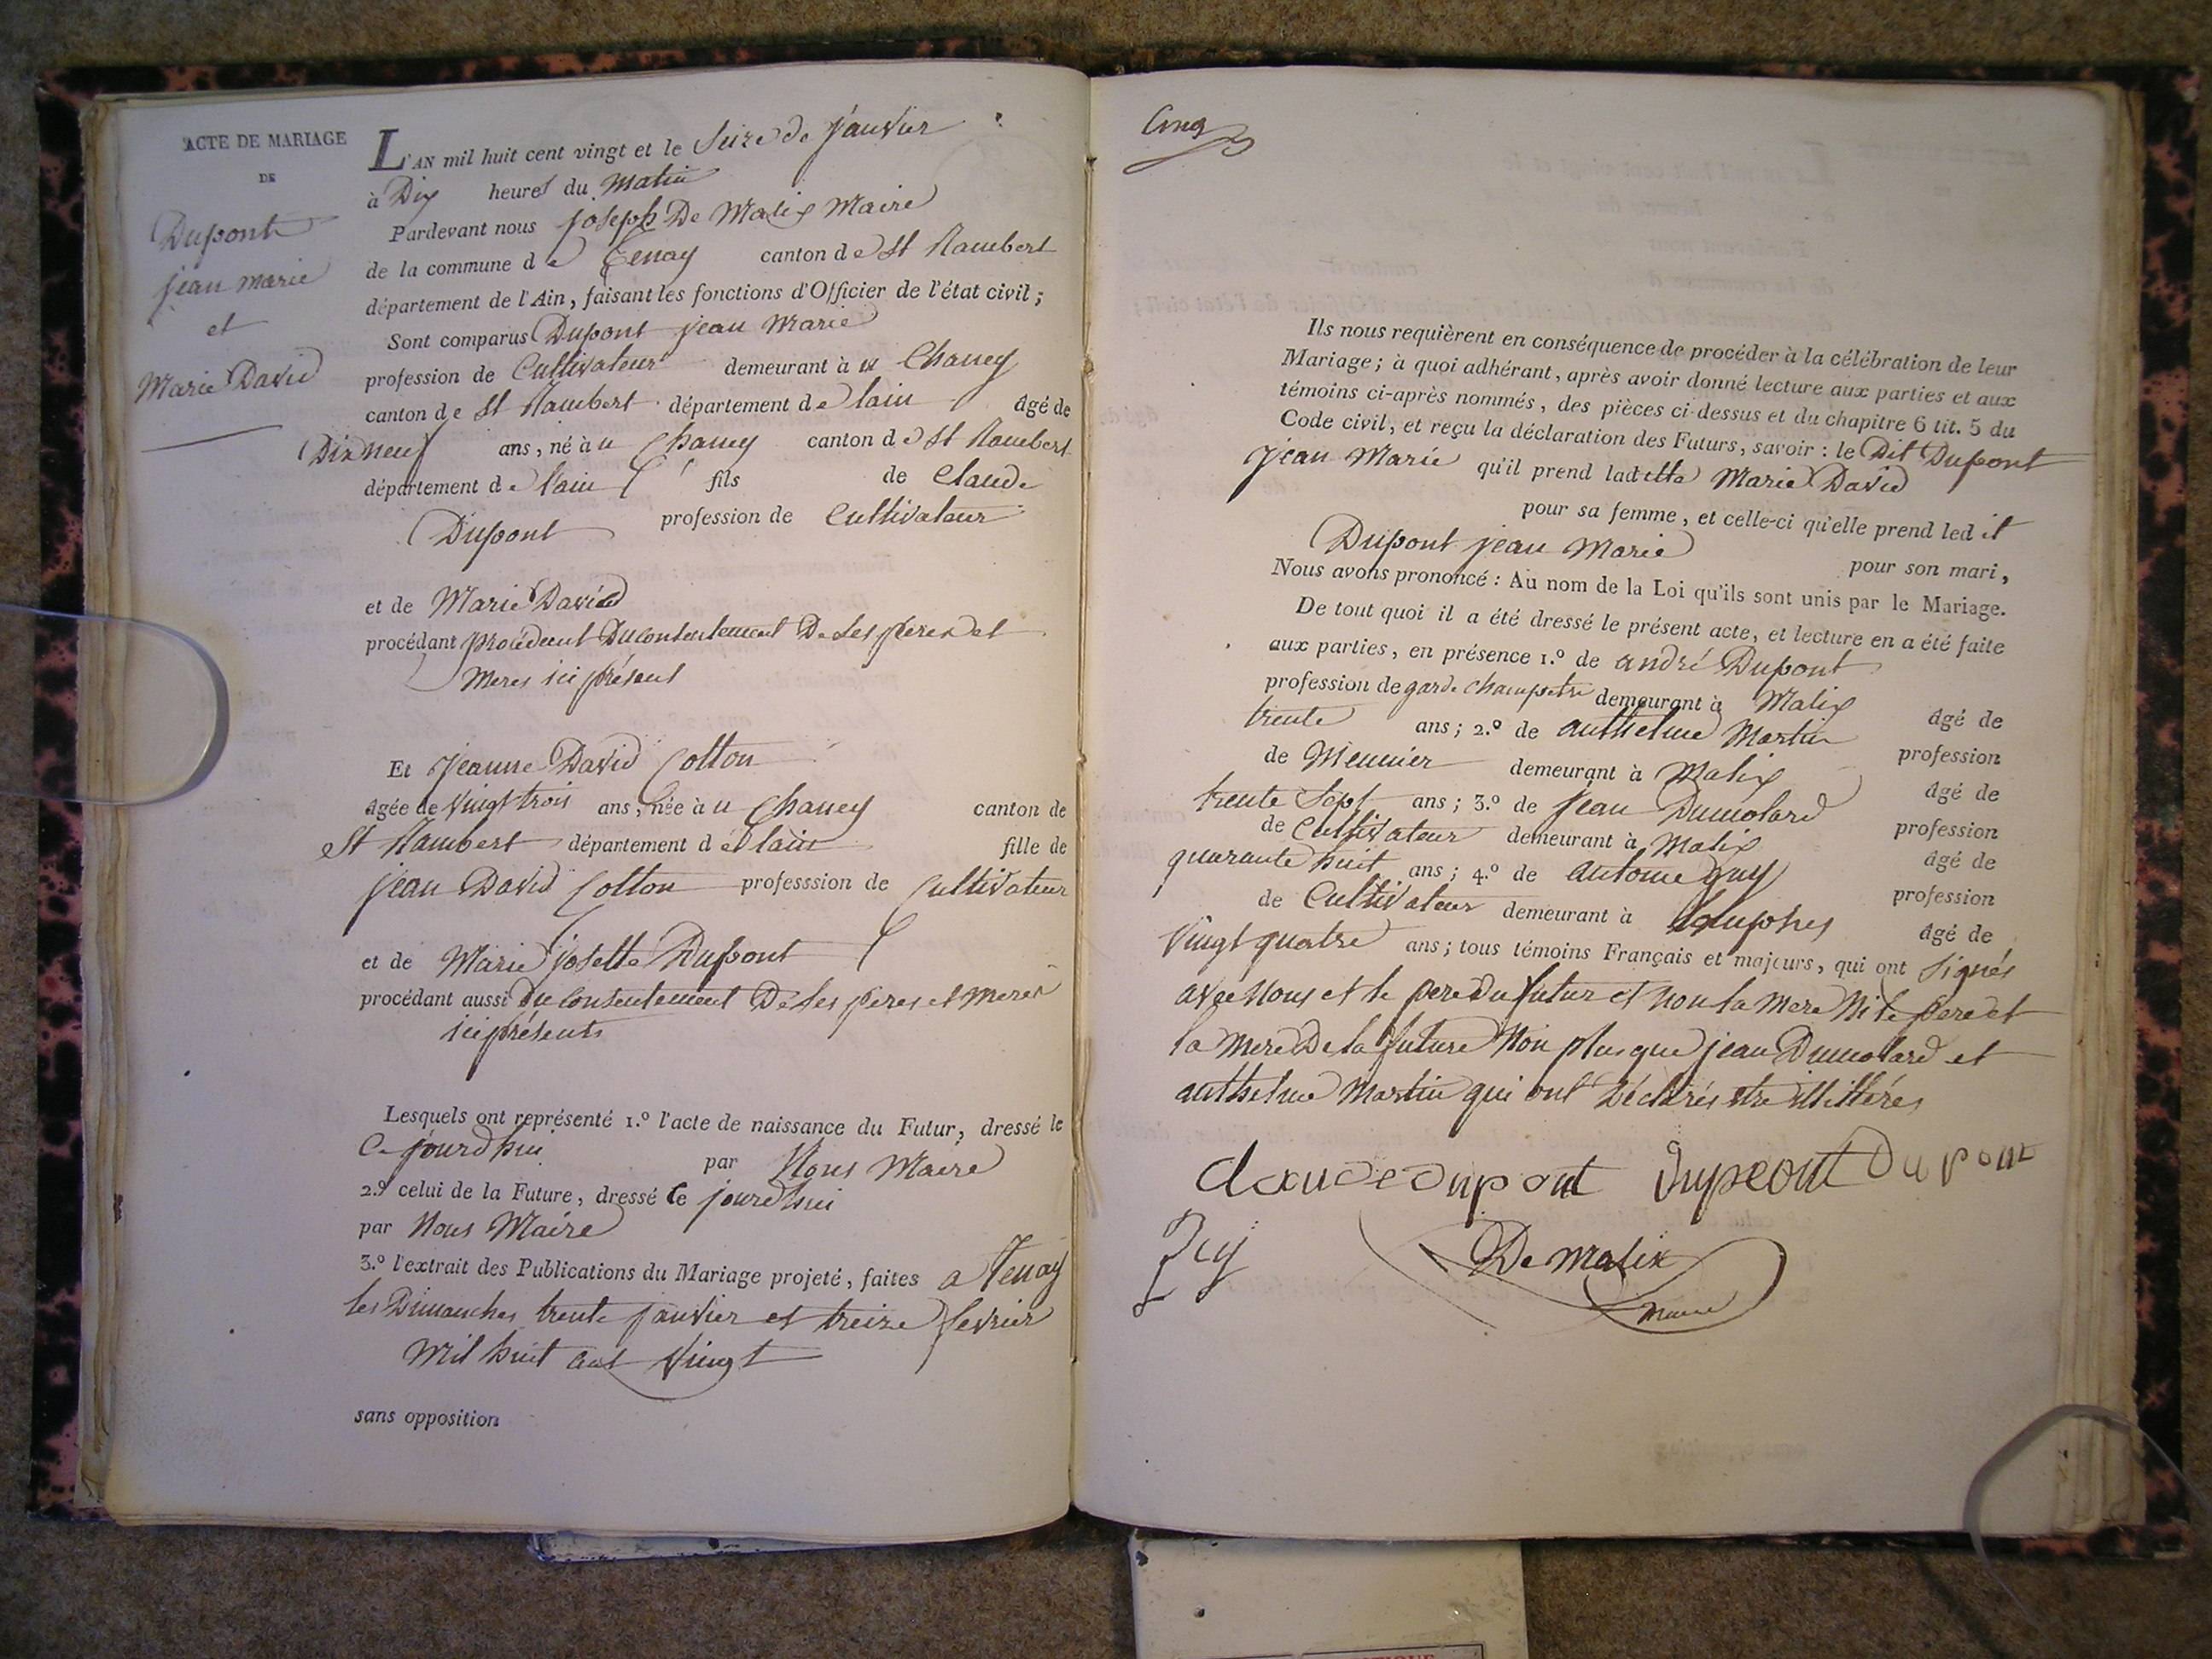 ACTE DE MARIAGE
DE
Dupont
jean marie
et
Marie David
L'AN mil huit cent vingt et le Seize de janvier
à Dix heures du Matin
Pardevant nous joseph De Malix Maire
de la commune de Tenay canton de St Rambert
département de l'Ain, faisant les fonctions d'Officier de l'état civil;
Sont comparus Dupont jean Marie
profession de Cultivateur demeurant à Chaney
canton de St Rambert département de lain âgé de
Dix neuf ans, né à u Chaney canton de St Rambert
département de lain fils de Claude
Dupont profession de Cultivateur
et de Marie David
procédant procédant Du consentement De Ses peres et
Meres ici présent
Et Jeanne David Cotton
âgée de Vingt trois ans, née à u Chaney canton de
St Rambert département de lain fille de
jean David Cotton professsion de Cultivateur
et de Marie josette Dupont
procédant aussi Du Consentement De Ses peres et meres
ici présents
Lesquels ont représenté 1.º l'acte de naissance du Futur, dressé le
Ce jourd'hui par Nous Maire
2.º celui de la Future, dressé Ce jourd'hui
par Nous Maire
3.º l'extrait des Publications du Mariage projeté, faites a Tenay
les Dimanches trente janvier et treize fevrier
Mil huit cent Vingt
sans opposition
Cinq
Ils nous requièrent en conséquence de procéder à la célébration de leur
Mariage; à quoi adhérant, après avoir donné lecture aux parties et aux
témoins ci-après nommés, des pièces ci-dessus et du chapitre 6 tit. 5 du
Code civil, et reçu la déclaration des Futurs, savoir: le Dit Dupont
Jean Marie qu'il prend ladette Marie David
pour sa femme, et celle-ci qu'elle prend ledit
Dupont jean Marie pour son mari,
Nous avons prononcé: Au nom de la Loi qu'ils sont unis par le Mariage.
De tout quoi il a été dressé le présent acte, et lecture en a été faite
aux parties, en présence 1.º de andré Dupont
profession de garde champetre demeurant à Malix âgé de
trente ans; 2.º de anthelme Martin profession
de Meunier demeurant à Malix âgé de
trente Sept ans; 3.º de Jean Dumolard profession
de Cultivateur demeurant à Malix âgé de
quarante huit ans; 4.º de antoine guy profession
de Cultivateur demeurant à âgé de
Vingt quatre ans; tous témoins Français et majeurs, qui ont Signés
avec Nous et le pere du futur et non la Mere Ni le pere et
la Mere De la future Non plus que jean Dumolard et
anthelme Martin qui ont Déclarés etre illittérés
Dupont
De Malix
Maire